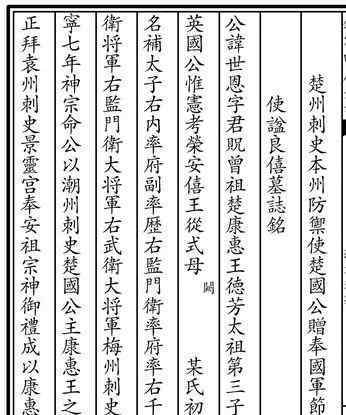 楚州刺史本州防禦使楚國公贈奉國軍節
使諡良僖墓誌銘
公諱世恩字君貺曾祖楚康惠王德芳太祖第三子
英國公惟憲考榮安僖王從式母闕某氏初
名補太子右內率府副率歷右監門衛率府率右千
衛將軍右監門衛大將軍右武衛大將軍梅州刺史
寧七年神宗命公以潮州刺史楚國公主康惠王之
正拜袁州刺史景靈宮奉安祖宗神御禮成以康惠